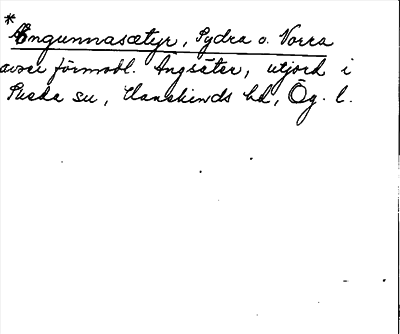 *Engunnasætyr, Sydra o. Norra
avser förmodl. Ängsäter, utjord i
Skeda sn, Hanekinds hd, Ög. l.